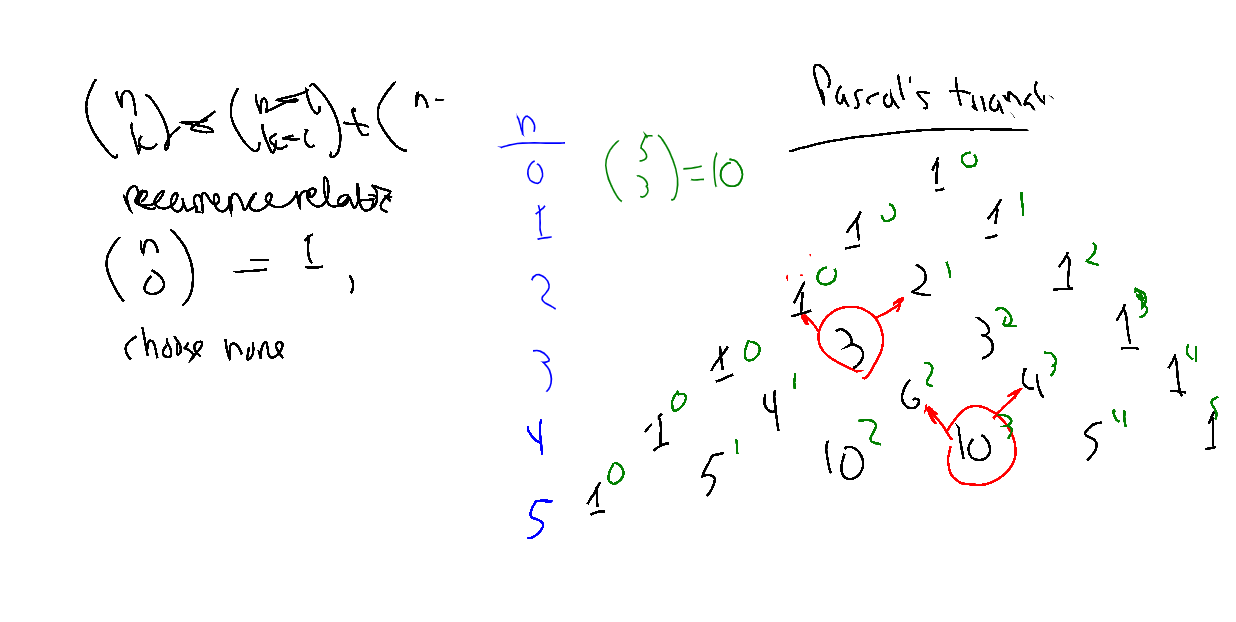 (n k) = (n-1 k-1) + (n-
recurrence relati
(n 0) = 1,
choose none
n
0
1
2
3
4
5
(5 3) = 10
Pascal's triangl
1 0
1 0 1 1
1 0 2 1 1 2
1 0 3 3 2 1 3
1 0 4 1 6 2 4 3 1 4
1 0 5 1 10 2 10 3 5 4 1 5